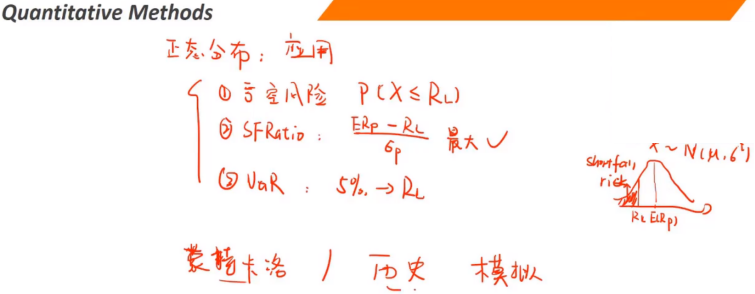 Quantitative Methods
正态分布：应用
① 亏空风险 P(X ≤ RL)
② SFRatio： ERp - RL / σp 最大 ✓
③ VaR ： 5% → RL
X ~ N(μ, σ²)
shortfall
risk
RL E(Rp)
蒙特卡洛 / 历史 模拟